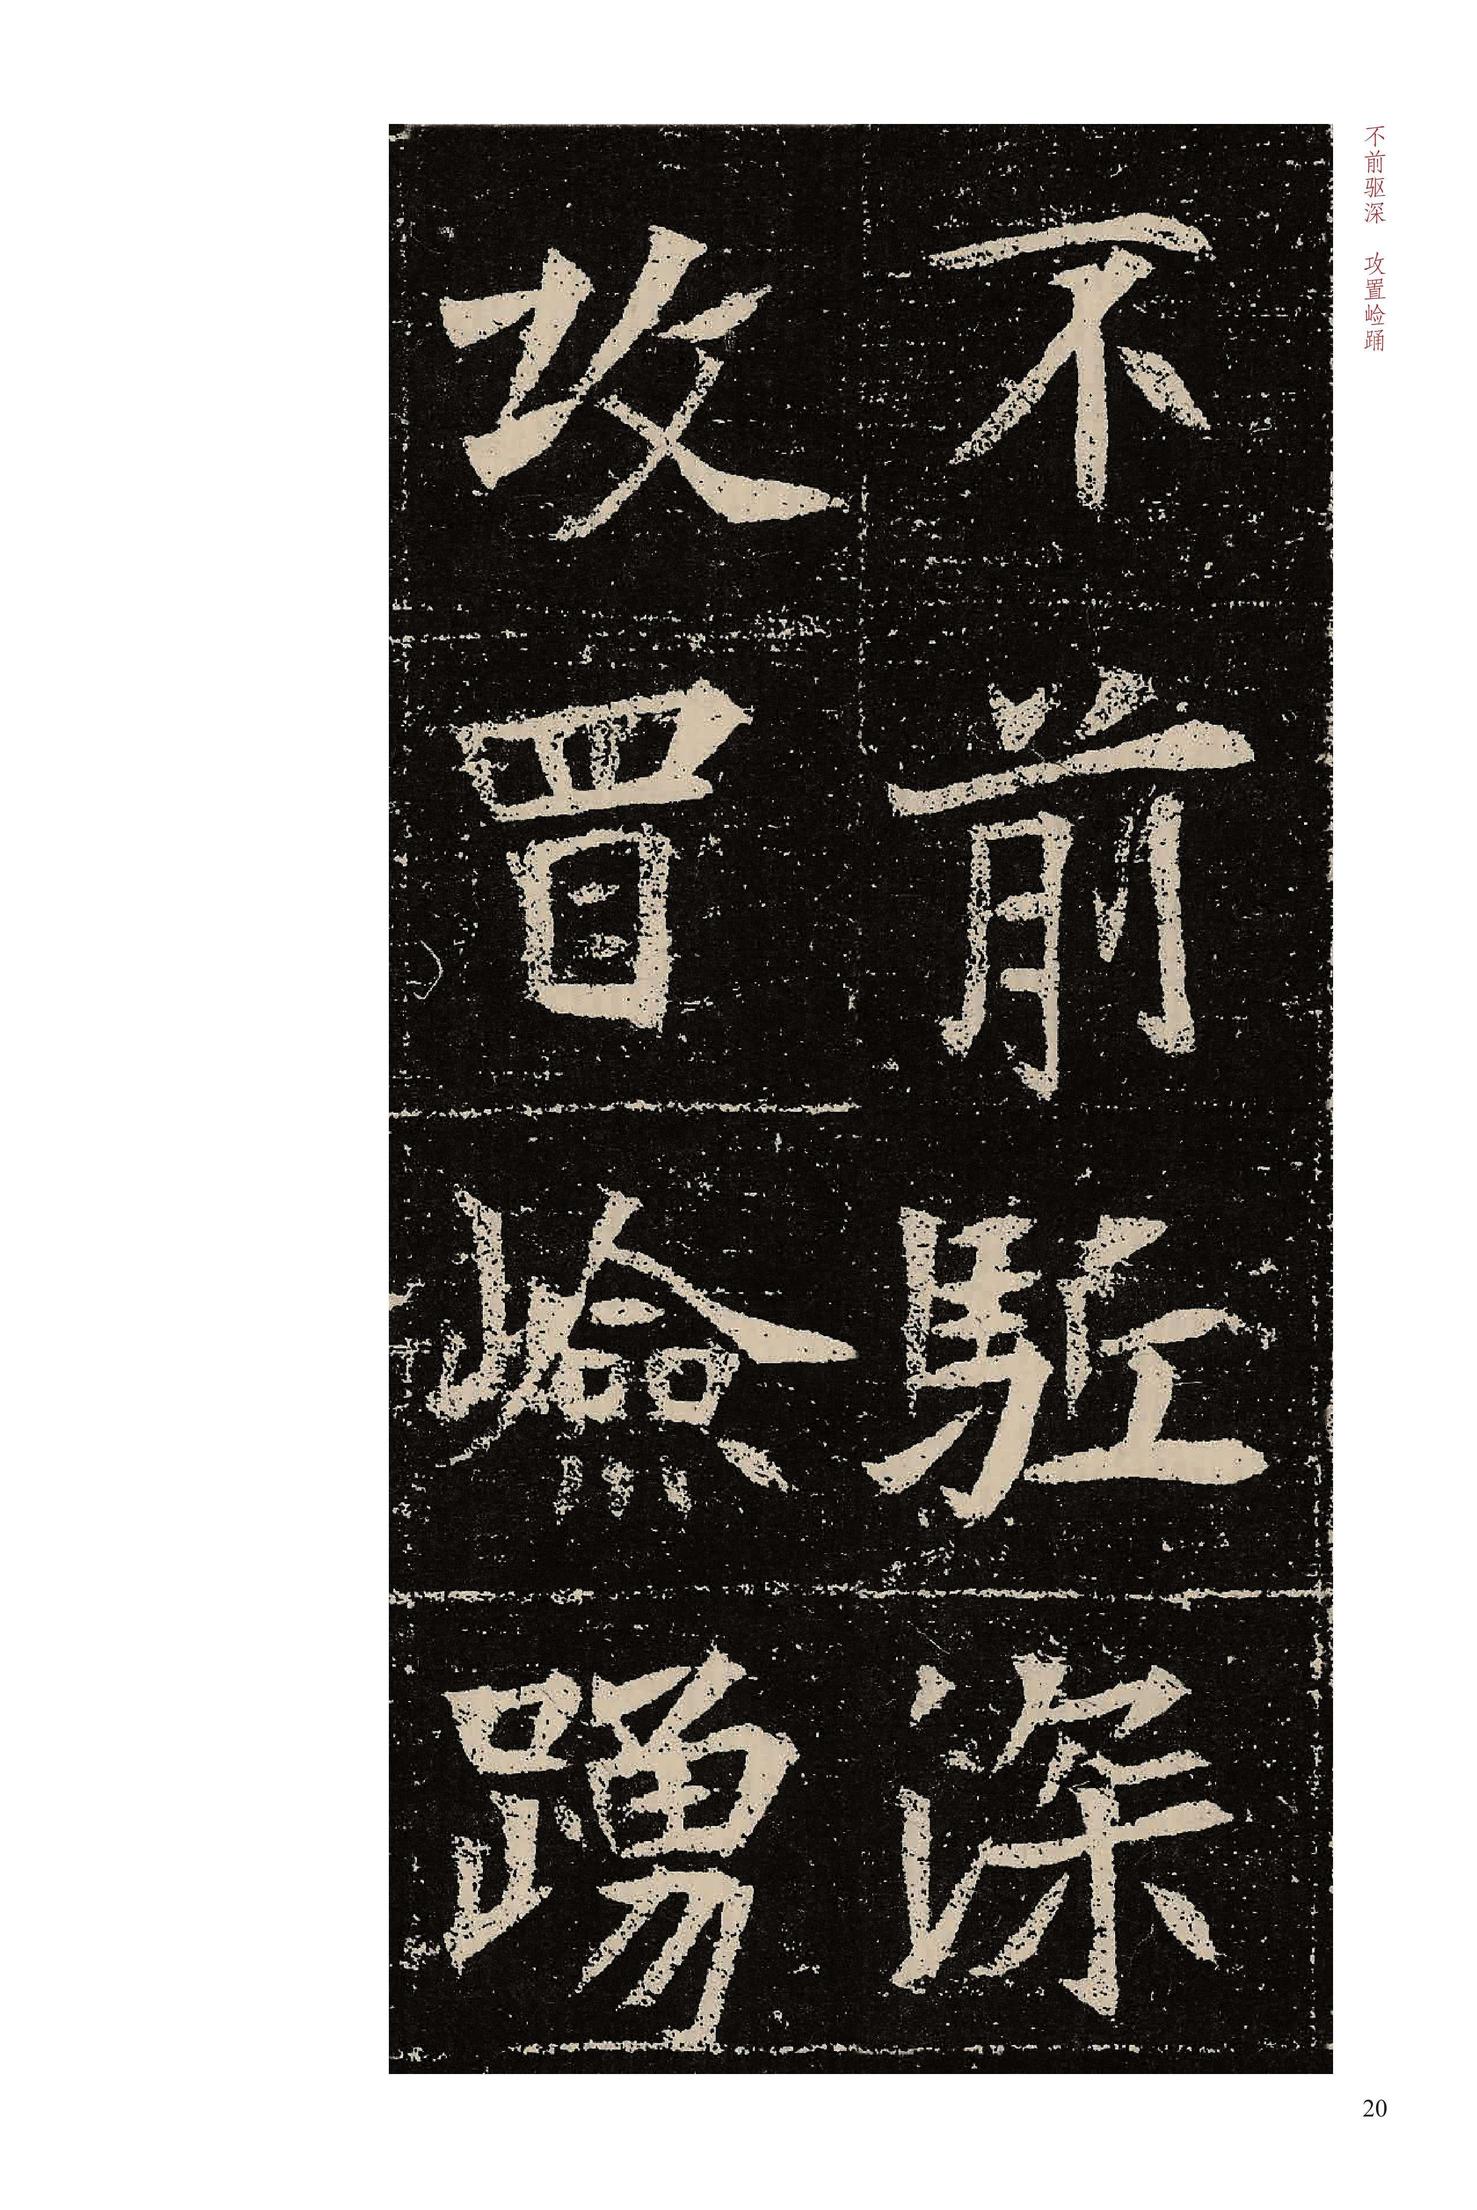 不前驱深　攻置崄踊
不前駈深
攻置嶮踴
20